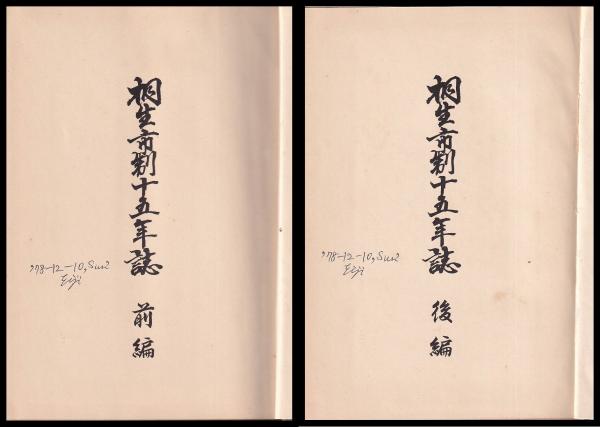 相生市制十五年誌
前編
'78-12-10, Sun
Eiji
相生市制十五年誌
後編
'78-12-10, Sun
Eiji